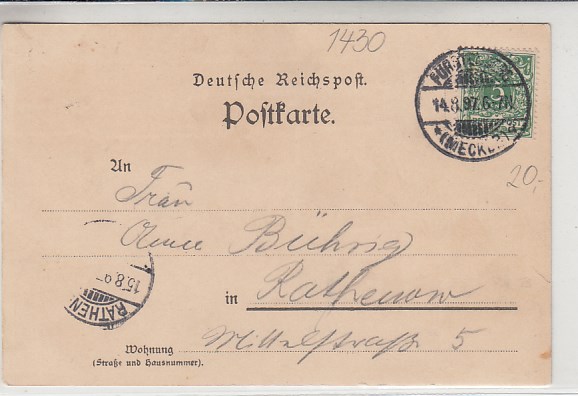 1430
Deutsche Reichspost.
Postkarte.
14.8.97.6-7N.
*(MECKL.)
20,-
An
Frau
Bührig
15.8.97
RATHEN
in Rathenow
Wohnung
(Straße und Hausnummer).
Mittelstraße 5